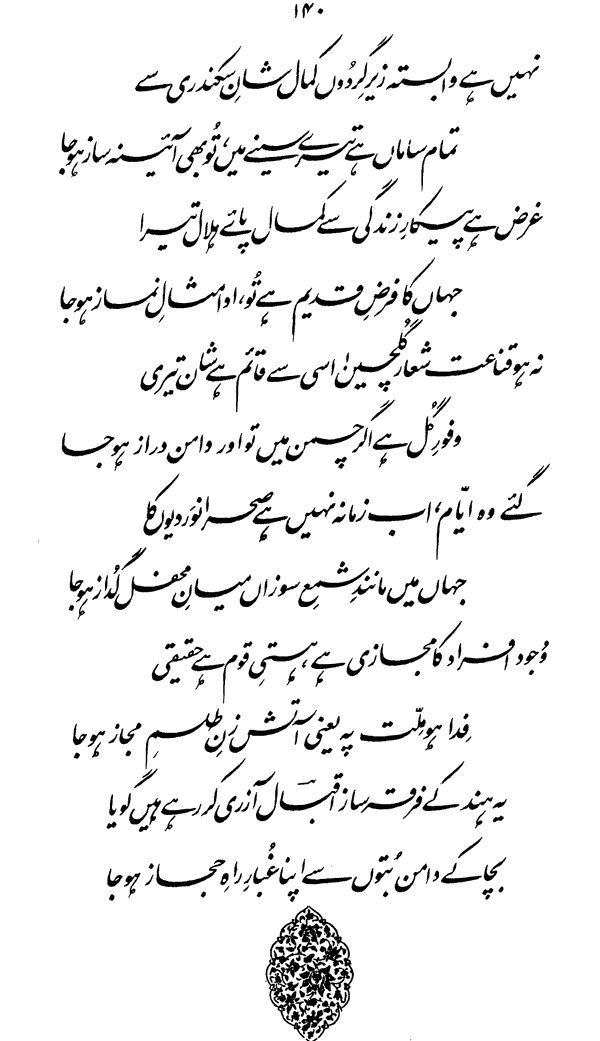 ۱۴۰
نہیں ہے وابستہ زیرِ گردُوں کمال شانِ سکندری سے
تمام ساماں ہے تیرے سینے میں، تُو بھی آئینہ ساز ہو جا
غرض ہے پیکارِ زندگی سے کمال پائے ہلال تیرا
جہاں کا فرضِ قدیم ہے تُو، ادا مثالِ نماز ہو جا
نہ ہو قناعت شعار گُلچیں! اسی سے قائم ہے شان تیری
وفورِ گُل ہے اگر چمن میں تو اور دامن دراز ہو جا
گئے وہ ایّام، اب زمانہ نہیں ہے صحرانوَردیوں کا
جہاں میں مانندِ شمعِ سوزاں میانِ محفل گُداز ہو جا
وُجود افراد کا مجازی ہے، ہستیِ قوم ہے حقیقی
فِدا ہو مِلّت پہ یعنی آتش زنِ طلسمِ مجاز ہو جا
یہ ہند کے فرقہ ساز اقبالؔ آزری کر رہے ہیں گویا
بچا کے دامن بُتوں سے اپنا غُبارِ راہِ حجاز ہو جا